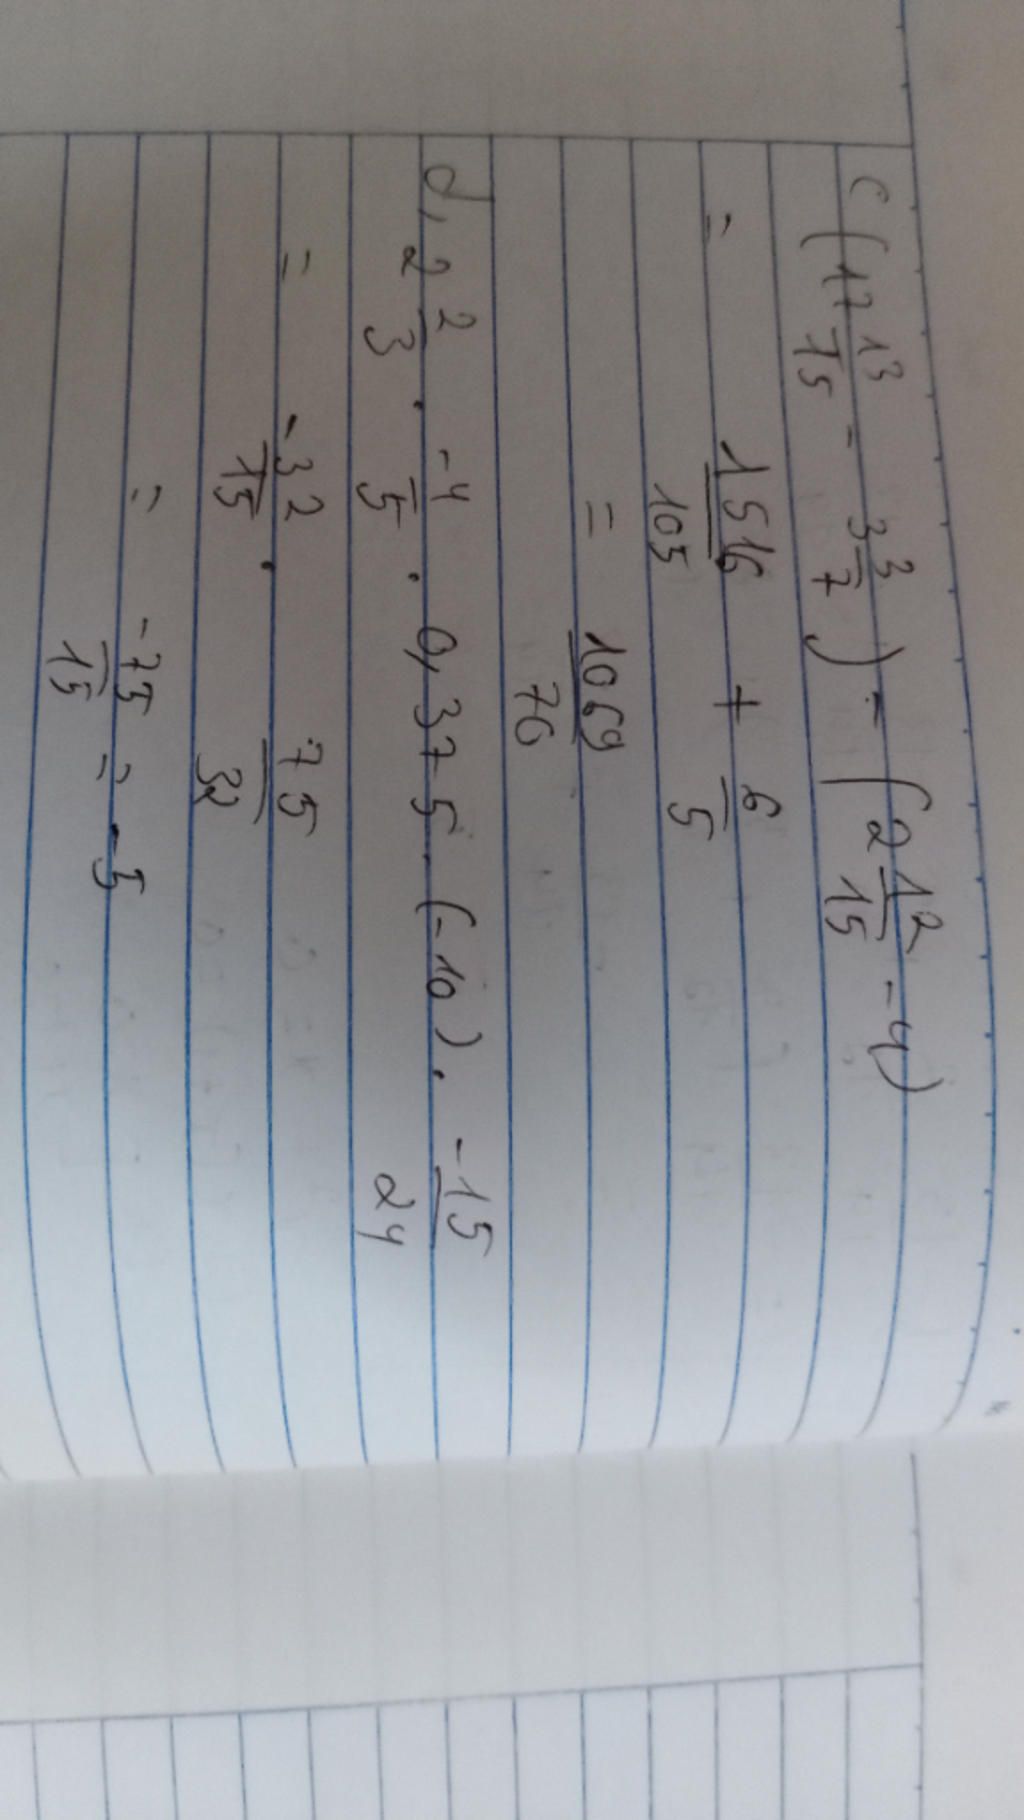 c (17 13/15 - 3 3/7) - (2 12/15 - 4)
= 1516/105 + 6/5
= 1069/70
d, 2 2/3 . -4/5 . 0,375 . (-10) . -15/24
= -32/15 . 75/32
= -75/15 = -5